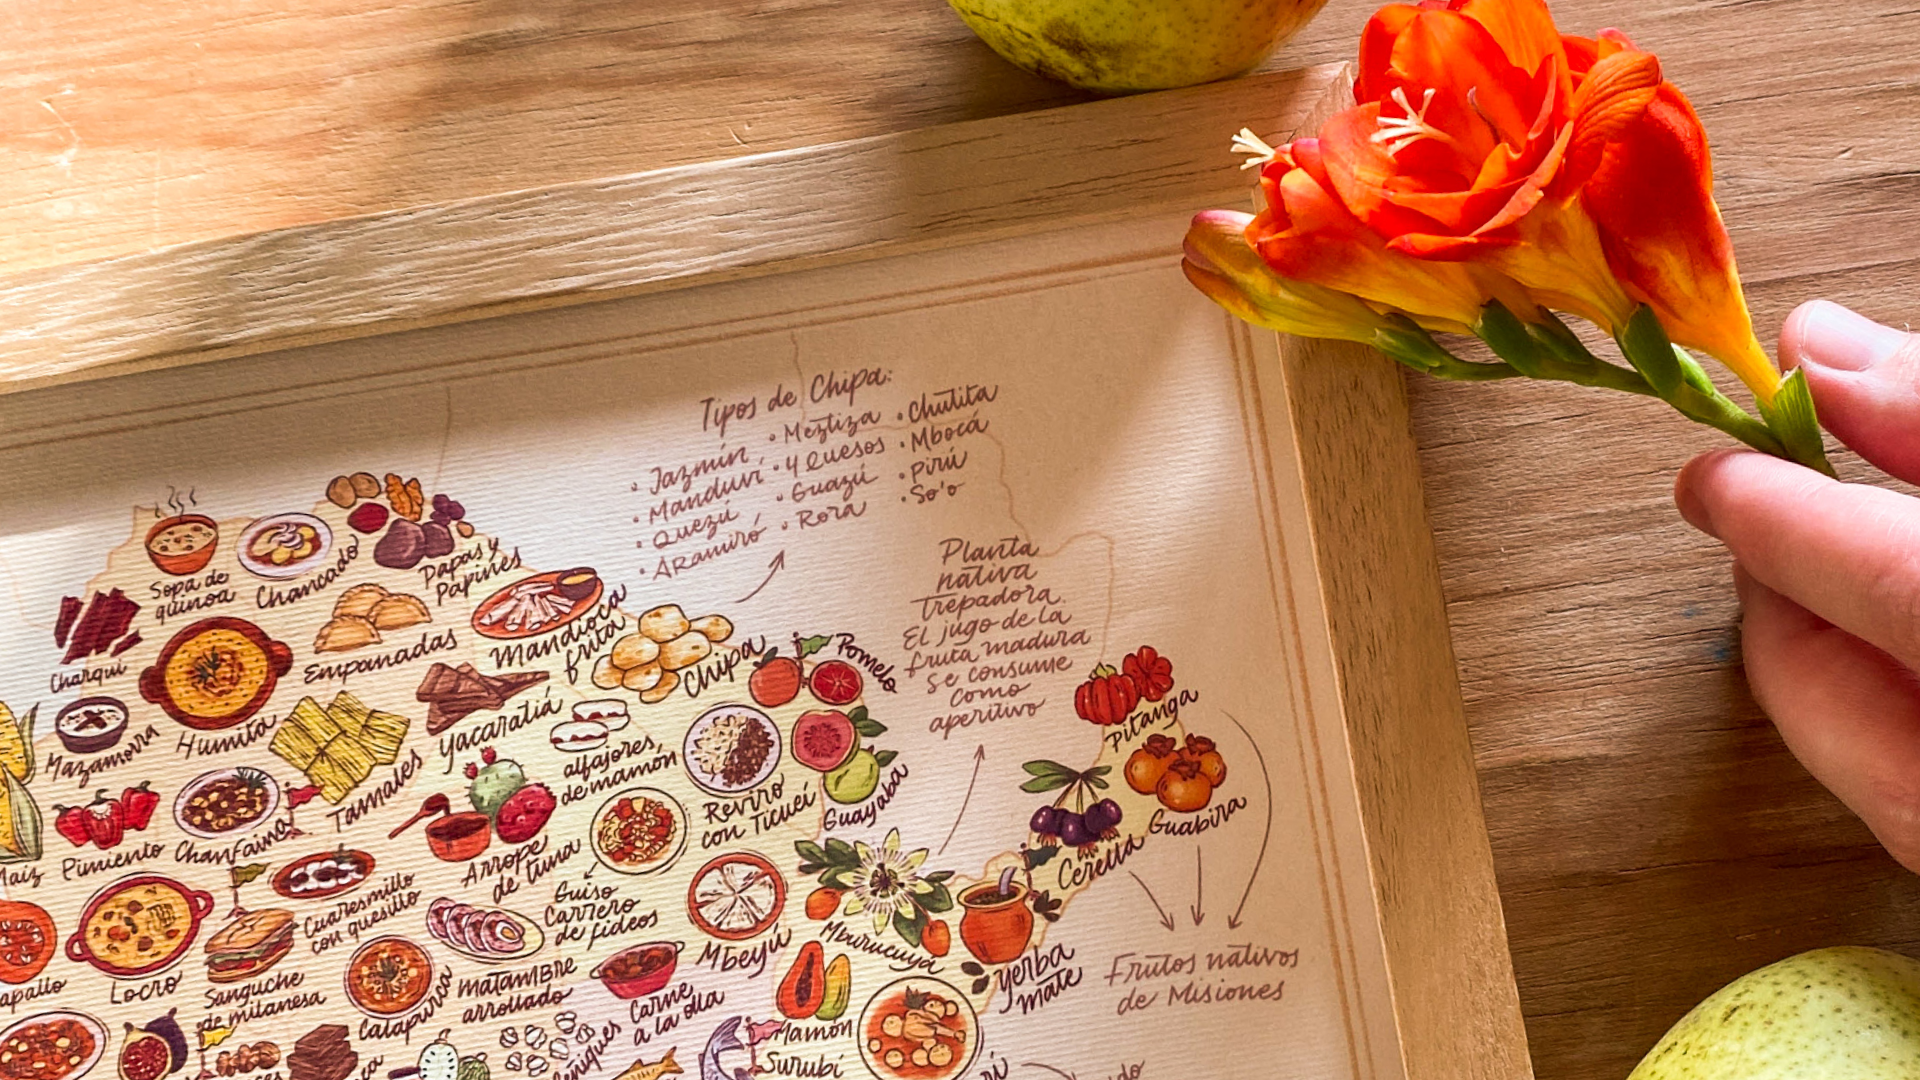 Tipos de Chipa:
• Jazmín
• Manduví
• Quezú
• Aramiró
• Meztiza
• 4 Quesos
• Guazú
• Rora
• Chutita
• Mbocá
• Pirú
• So'o
Planta
nativa
trepadora.
El jugo de la
fruta madura
se consume
como
aperitivo
Sopa de
quinoa
Chancado
Papas y
Papines
Charqui
Empanadas
Mandioca
frita
Chipa
Pomelo
Pitanga
Mazamorra
Humita
Tamales
Yacaratiá
alfajores
de mamón
Reviro
con Ticueí
Guayaba
Guabira
Cerella
Maíz
Pimiento
Chanfaina
Arrope
de tuna
Guiso
Carrero
de fideos
Cuaresmillo
con quesillo
Mbeyú
Mburucuyá
yerba
mate
Frutos nativos
de Misiones
apallo
Locro
Sanguche
de milanesa
Calapurca
matambre
arrollado
Carne
a la olla
Mamón
Surubí